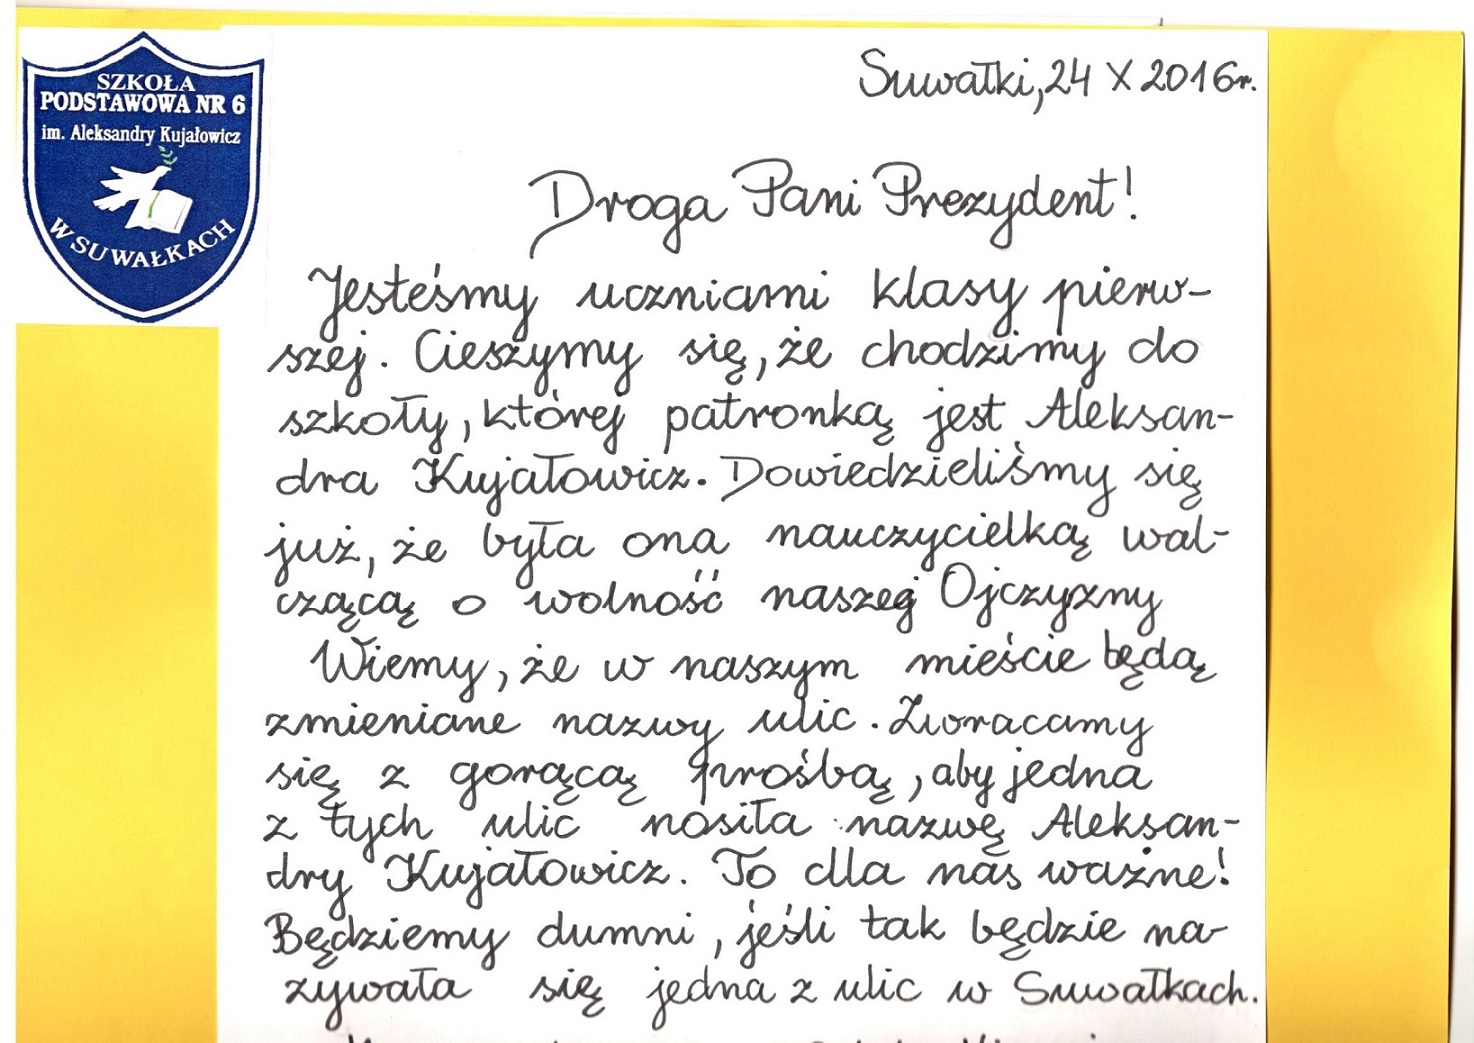 SZKOŁA
PODSTAWOWA NR 6
im. Aleksandry Kujałowicz
W SUWAŁKACH
Suwałki, 24 X 2016r.
Droga Pani Prezydent!
Jesteśmy uczniami klasy pierw-
szej. Cieszymy się, że chodzimy do
szkoły, której patronką jest Aleksan-
dra Kujałowicz. Dowiedzieliśmy się
już, że była ona nauczycielką wal-
czącą o wolność naszej Ojczyzny
Wiemy, że w naszym mieście będą
zmieniane nazwy ulic. Zwracamy
się z gorącą prośbą, aby jedna
z tych ulic nosiła nazwę Aleksan-
dry Kujałowicz. To dla nas ważne!
Będziemy dumni, jeśli tak będzie na-
zywała się jedna z ulic w Suwałkach.